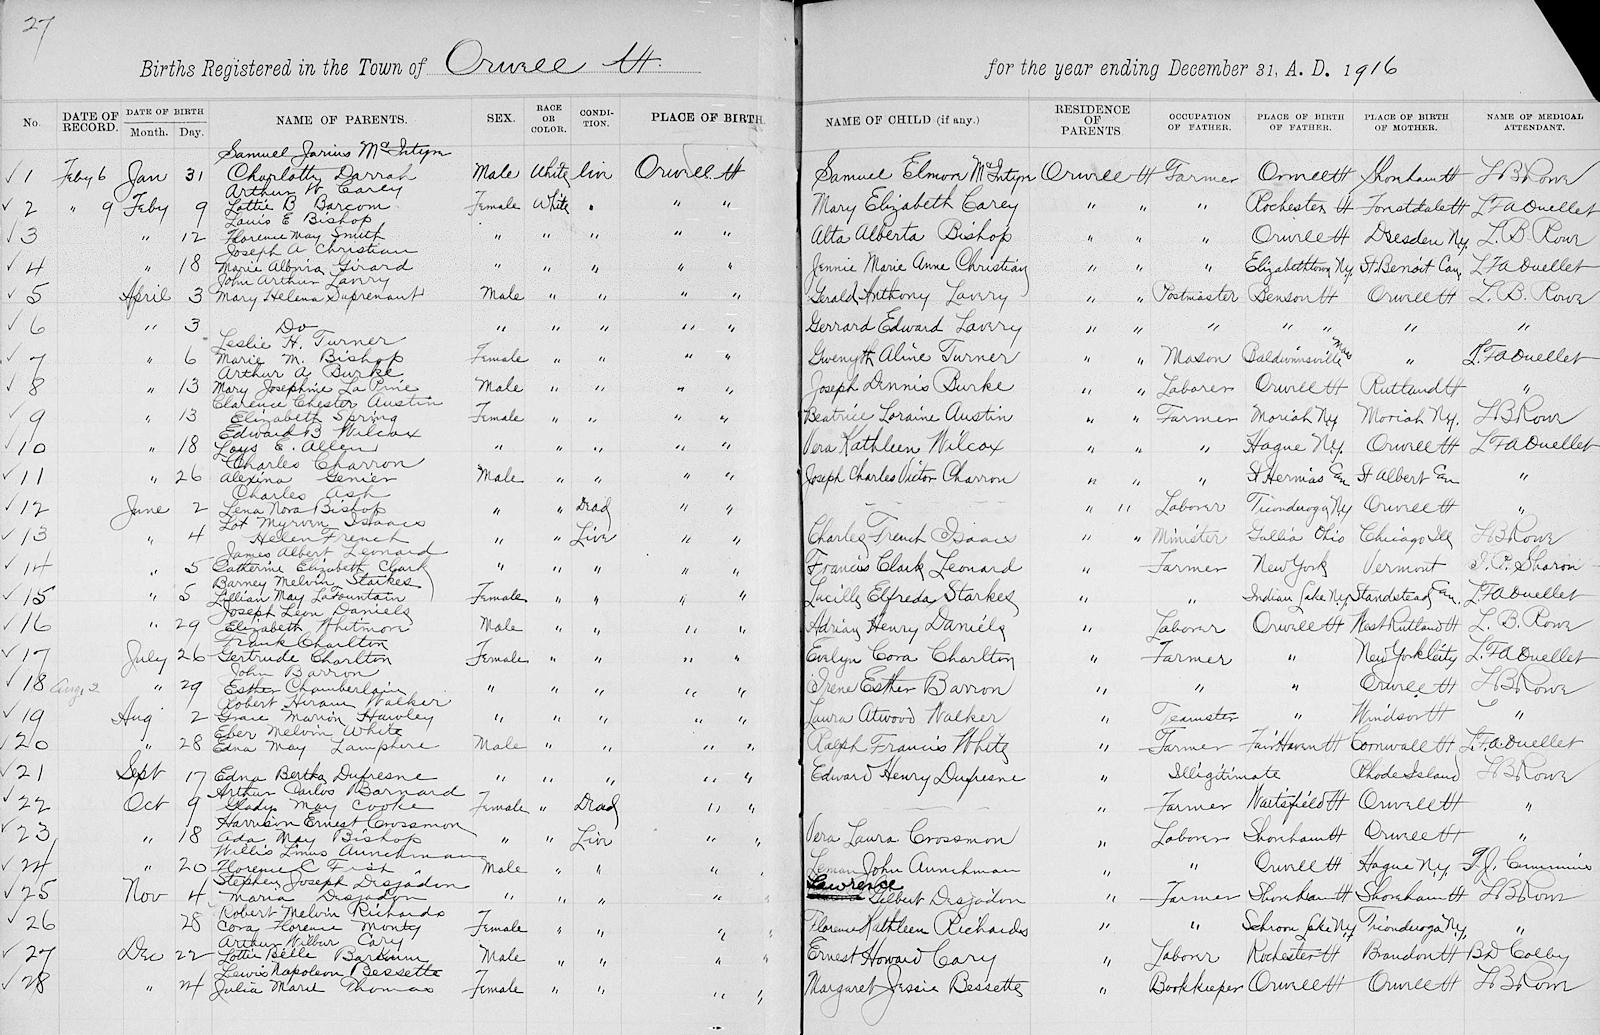 27
Births Registered in the Town of Orwell Vt. for the year ending December 31, A. D. 1916
No. DATE OF RECORD. DATE OF BIRTH Month. Day. NAME OF PARENTS. SEX. RACE OR COLOR. CONDITION. PLACE OF BIRTH. NAME OF CHILD (if any.) RESIDENCE OF PARENTS. OCCUPATION OF FATHER. PLACE OF BIRTH OF FATHER. PLACE OF BIRTH OF MOTHER. NAME OF MEDICAL ATTENDANT.
Samuel Jarius McIntyre
✓ 1 Feby 6 Jan 31 Charlotte Darrah Male White live Orwell Vt Samuel Elmon McIntyre Orwell Vt Farmer Orwell Vt Shoreham Vt L B Rowe
Arthur W. Carey
✓ 2 " 9 Feby 9 Lottie B Barcom Female White " " " Mary Elizabeth Carey " " " Rochester Vt Forestdale Vt L F A Ouellet
Louis E Bishop
✓ 3 " 12 Florence May Smith " " " " " Alta Alberta Bishop " " " Orwell Vt Dresden Ny. L. B. Rowe
Joseph A Christian
✓ 4 " 18 Marie Albina Girard " " " " " Jennie Marie Anne Christian " " " Elizabethtown Ny St Benoit Can L F A Ouellet
John Arthur Lavery
✓ 5 April 3 Mary Helena Suprenant Male " " " " Gerald Anthony Lavery " " Postmaster Benson Vt Orwell Vt L. B. Rowe
✓ 6 " 3 Do " " " " " Gerrard Edward Lavery " " " " " " "
Leslie H. Turner
✓ 7 " 6 Marie M. Bishop Female " " " " Gwenyth Aline Turner " " Mason Baldwinsville Mass " L. F A Ouellet
Arthur A Burke
✓ 8 " 13 Mary Josephine La Pine Male " " " " Joseph Dennis Burke " " Laborer Orwell Vt Rutland Vt "
Clarence Chester Austin
✓ 9 " 13 Elizabeth Spring Female " " " " Beatrice Loraine Austin " " Farmer Moriah Ny Moriah Ny. L B Rowe
Edward B Wilcox
✓ 10 " 18 Loys E. Allen " " " " " Vera Kathleen Wilcox " " " Hague N.y. Orwell Vt L F A Ouellet
Charles Charron
✓ 11 " 26 Alexina Genier Male " " " " Joseph Charles Victor Charron " " " St Hermas Can St Albert Can "
Charles Ash
✓ 12 June 2 Lena Nora Bishop " " Dead " " " " Laborer Ticonderoga Ny Orwell Vt "
Lot Myrvin Isaacs
✓ 13 " 4 Helen French " " Live " " Charles French Isaacs " " Minister Gallia Ohio Chicago Ill L B Rowe
James Albert Leonard
✓ 14 " 5 Catherine Elizabeth Clark " " " " " Francis Clark Leonard " Farmer New York Vermont Sharon
Barney Melvin Starkes
✓ 15 " 5 Lillian May LaFountain Female " " " " Lucille Elfreda Starkes " " Indian Lake Ny Standstead Can. L F A Ouellet
Joseph Leon Daniels
✓ 16 " 29 Elizabeth Whitmore Male " " " " Adrian Henry Daniels " Laborer Orwell Vt West Rutland Vt L. B. Rowe
Frank Charlton
✓ 17 July 26 Gertrude Charlton Female " " " " Evelyn Cora Charlton " Farmer " New York City L. F A Ouellet
John Barron
✓ 18 Aug. 2 " 29 Esther Chamberlain " " " " " Irene Esther Barron " " " Orwell Vt L B Rowe
Robert Hiram Walker
✓ 19 Aug 2 Grace Marion Hawley " " " " " Laura Atwood Walker " Teamster " Windsor Vt "
Eber Melvin White
✓ 20 " 28 Edna May Lamphere Male " " " " Ralph Francis White " Farmer Fair Haven Vt Cornwall Vt L. F. A. Ouellet
✓ 21 Sept 17 Edna Bertha Dufresne " " " " " Edward Henry Dufresne " Illigitimate Rhode Island L B Rowe
Arthur Carlos Barnard
✓ 22 Oct 9 Gladys May Cooke Female " Dead " " " Farmer Waitsfield Vt Orwell Vt "
Harrison Ernest Crossmon
✓ 23 " 18 Ada May Bishop " " Live " " Vera Laura Crossmon " Laborer Shoreham Vt Orwell Vt "
Willis Linus Aunchman
✓ 24 " 20 Florence C Fish Male " " " Leman John Aunchman " " Orwell Vt Hague N.y. Cummins
Stephen Joseph Desjadon Lawrence
✓ 25 Nov 4 Maria Desjadon " " " " " Gilbert Desjadon " Farmer Shoreham Vt Shoreham Vt L B Rowe
Robert Melvin Richards
✓ 26 28 Cora Florence Monty Female " " " " Florence Kathleen Richards " " Schroon Lake Ny Ticonderoga Ny. "
Arthur Wilbur Cary
✓ 27 Dec 22 Lottie Belle Barkum Male " " " " Ernest Howard Cary " Laborer Rochester Vt Brandon Vt B D Colby
Lewis Napoleon Bessette
✓ 28 " 24 Julia Marie Thomas Female " " " " Margaret Jessie Bessette " Bookkeeper Orwell Vt Orwell Vt L B Rowe